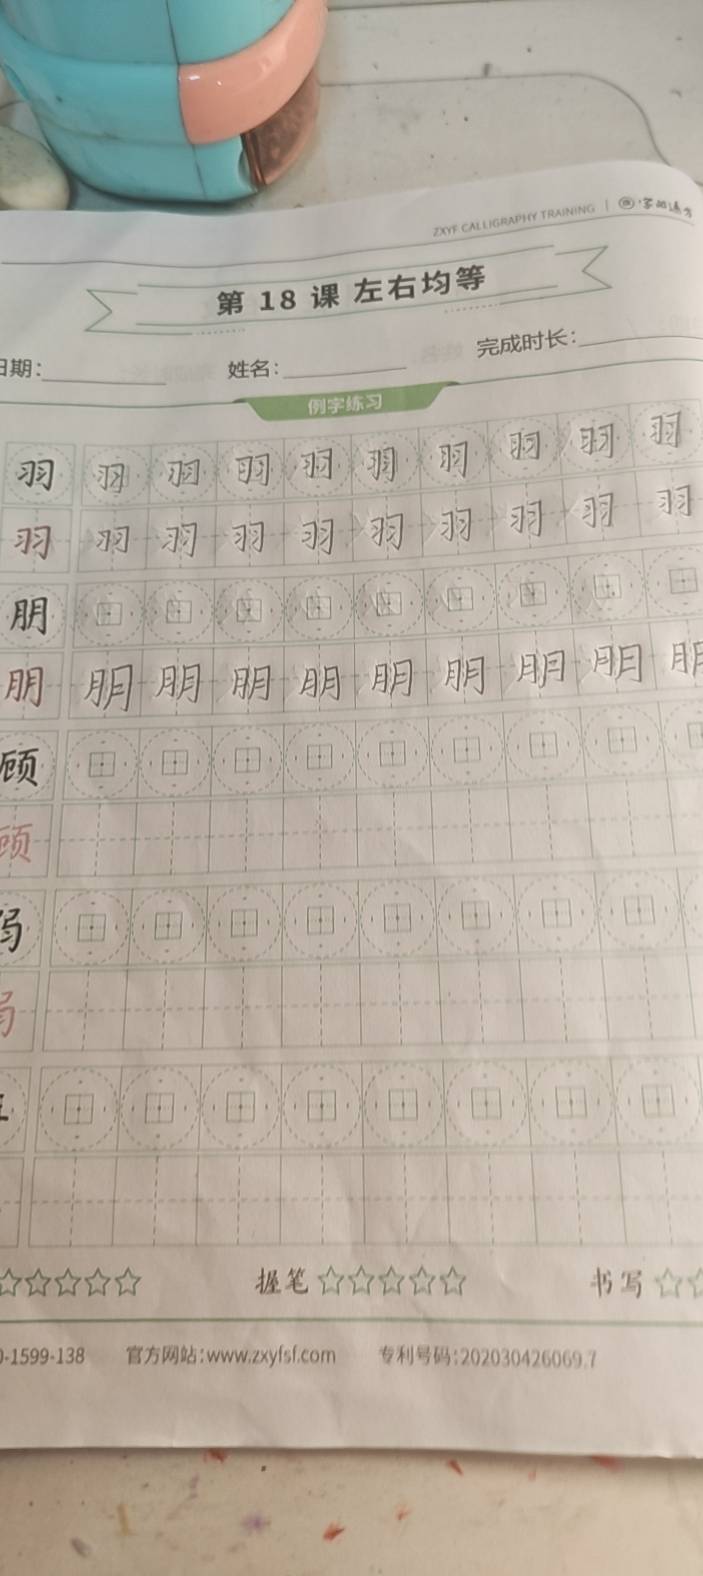 ZXYF CALLIGRAPHY TRAINING
第 18 课 左右均等
日期: 姓名: 完成时长:
例字练习
羽 羽 羽 羽 羽 羽 羽 羽 羽 羽
羽 羽 羽 羽 羽 羽 羽 羽 羽 羽
朋
朋 朋 朋 朋 朋 朋 朋 朋 朋 朋
顾
顾
握笔 书写
0-1599-138 官方网站:www.zxyfsf.com 专利号码:202030426069.7